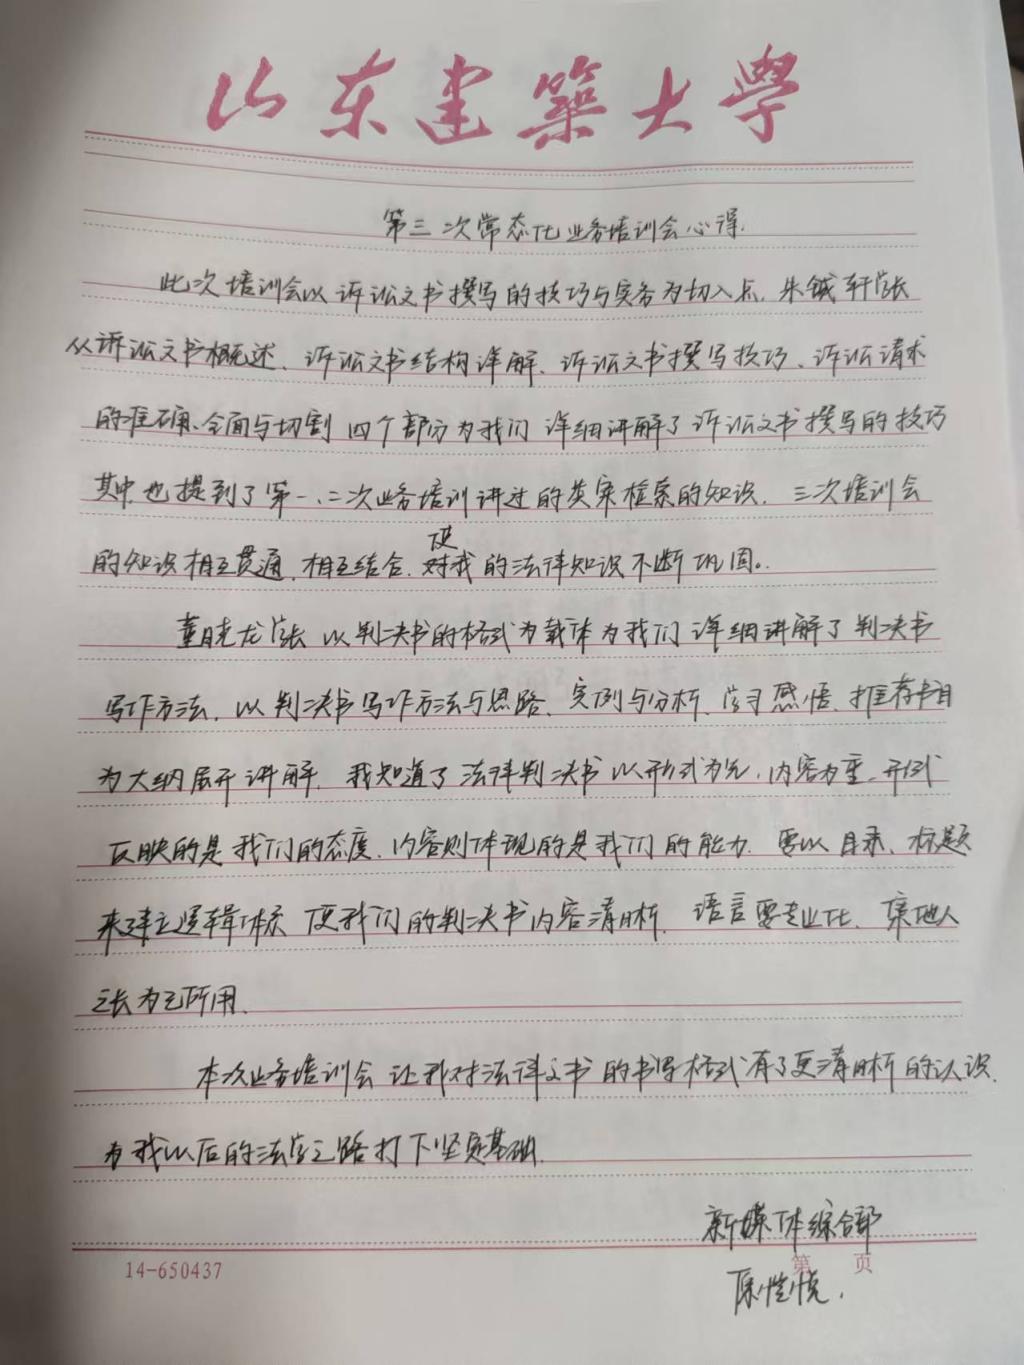 山东建築大學
第三次常态化业务培训会心得.
此次培训会以诉讼文书撰写的技巧与实务为切入点,朱铖轩学长
从诉讼文书概述、诉讼文书结构详解、诉讼文书撰写技巧、诉讼请求
的准确、全面与切割四个部分为我们详细讲解了诉讼文书撰写的技巧
其中也提到了第一、二次业务培训讲过的类案检索的知识.三次培训会
的知识相互贯通,相互结合,使我的法律知识不断巩固。
董晓龙学长以判决书的格式为载体为我们详细讲解了判决书
写作方法,以判决书写作方法与思路、实例与分析、学习感悟、推荐书目
为大纲展开讲解.我知道了法律判决书以形式为先,内容为重,形式
反映的是我们的态度,内容则体现的是我们的能力.要以目录、标题
来建立逻辑体系使我们的判决书内容清晰.语言要专业化.集他人
之长为己所用.
本次业务培训会让我对法律文书的书写格式有了更清晰的认识.
为我以后的法学之路打下坚定基础.
新媒体综合部
14-650437
第 页